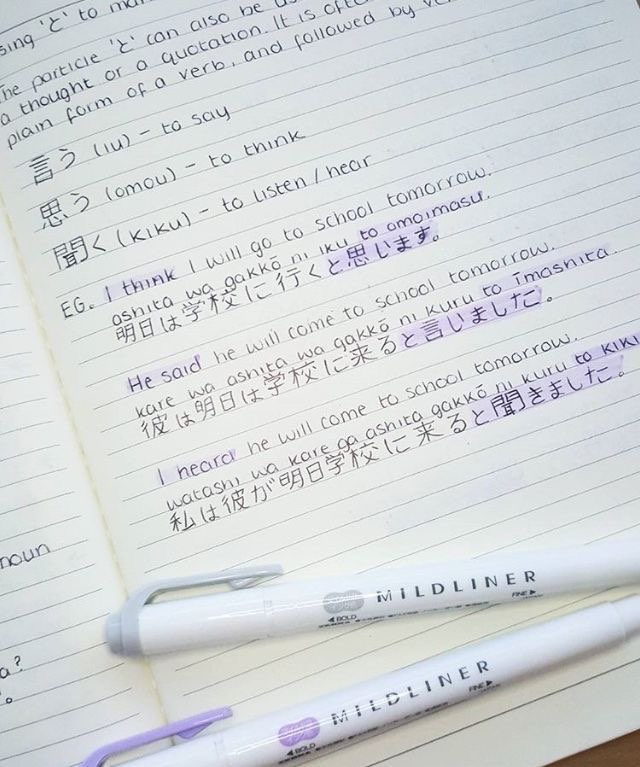 'と' to
The particle 'と' can also be
a thought or a quotation. It is
plain form of a verb, and followed by
言う (iu) - to say
思う (omou) - to think
聞く (kiku) - to listen / hear
EG. I think I will go to school tomorrow.
ashita wa gakkō ni iku to omoimasu.
明日は学校に行くと思います。
He said he will come to school tomorrow.
kare wa ashita wa gakkō ni kuru to īmashita.
彼は明日は学校に来ると言いました。
I heard he will come to school tomorrow.
watashi wa kare ga ashita gakkō ni kuru to kiki
私は彼が明日学校に来ると聞きました。
noun
a?
MILDLINER
◀BOLD
FINE▶
MILDLINER
◀BOLD
FINE▶